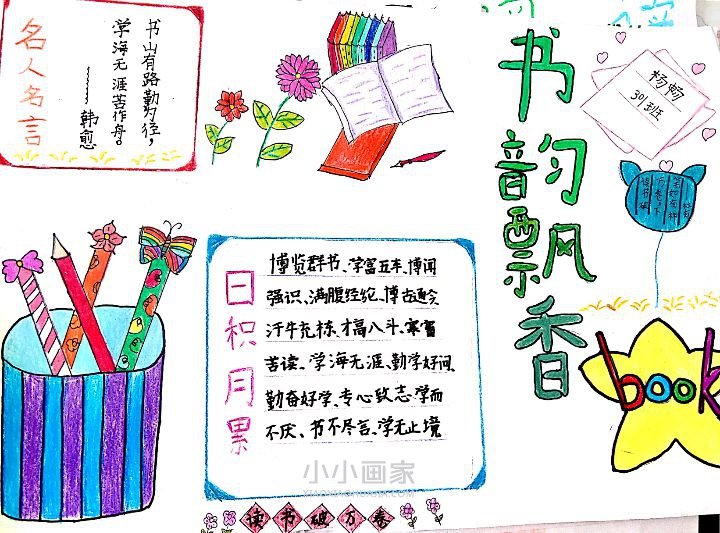 名人名言
书山有路勤为径，
学海无涯苦作舟。
韩愈
书韵飘香
杨畅
301班
book
日积月累
博览群书、学富五车、博闻
强识、满腹经纶、博古通今
汗牛充栋、才高八斗、寒窗
苦读、学海无涯、勤学好问、
勤奋好学、专心致志、学而
不厌、书不尽言、学无止境
读书破万卷
小小画家